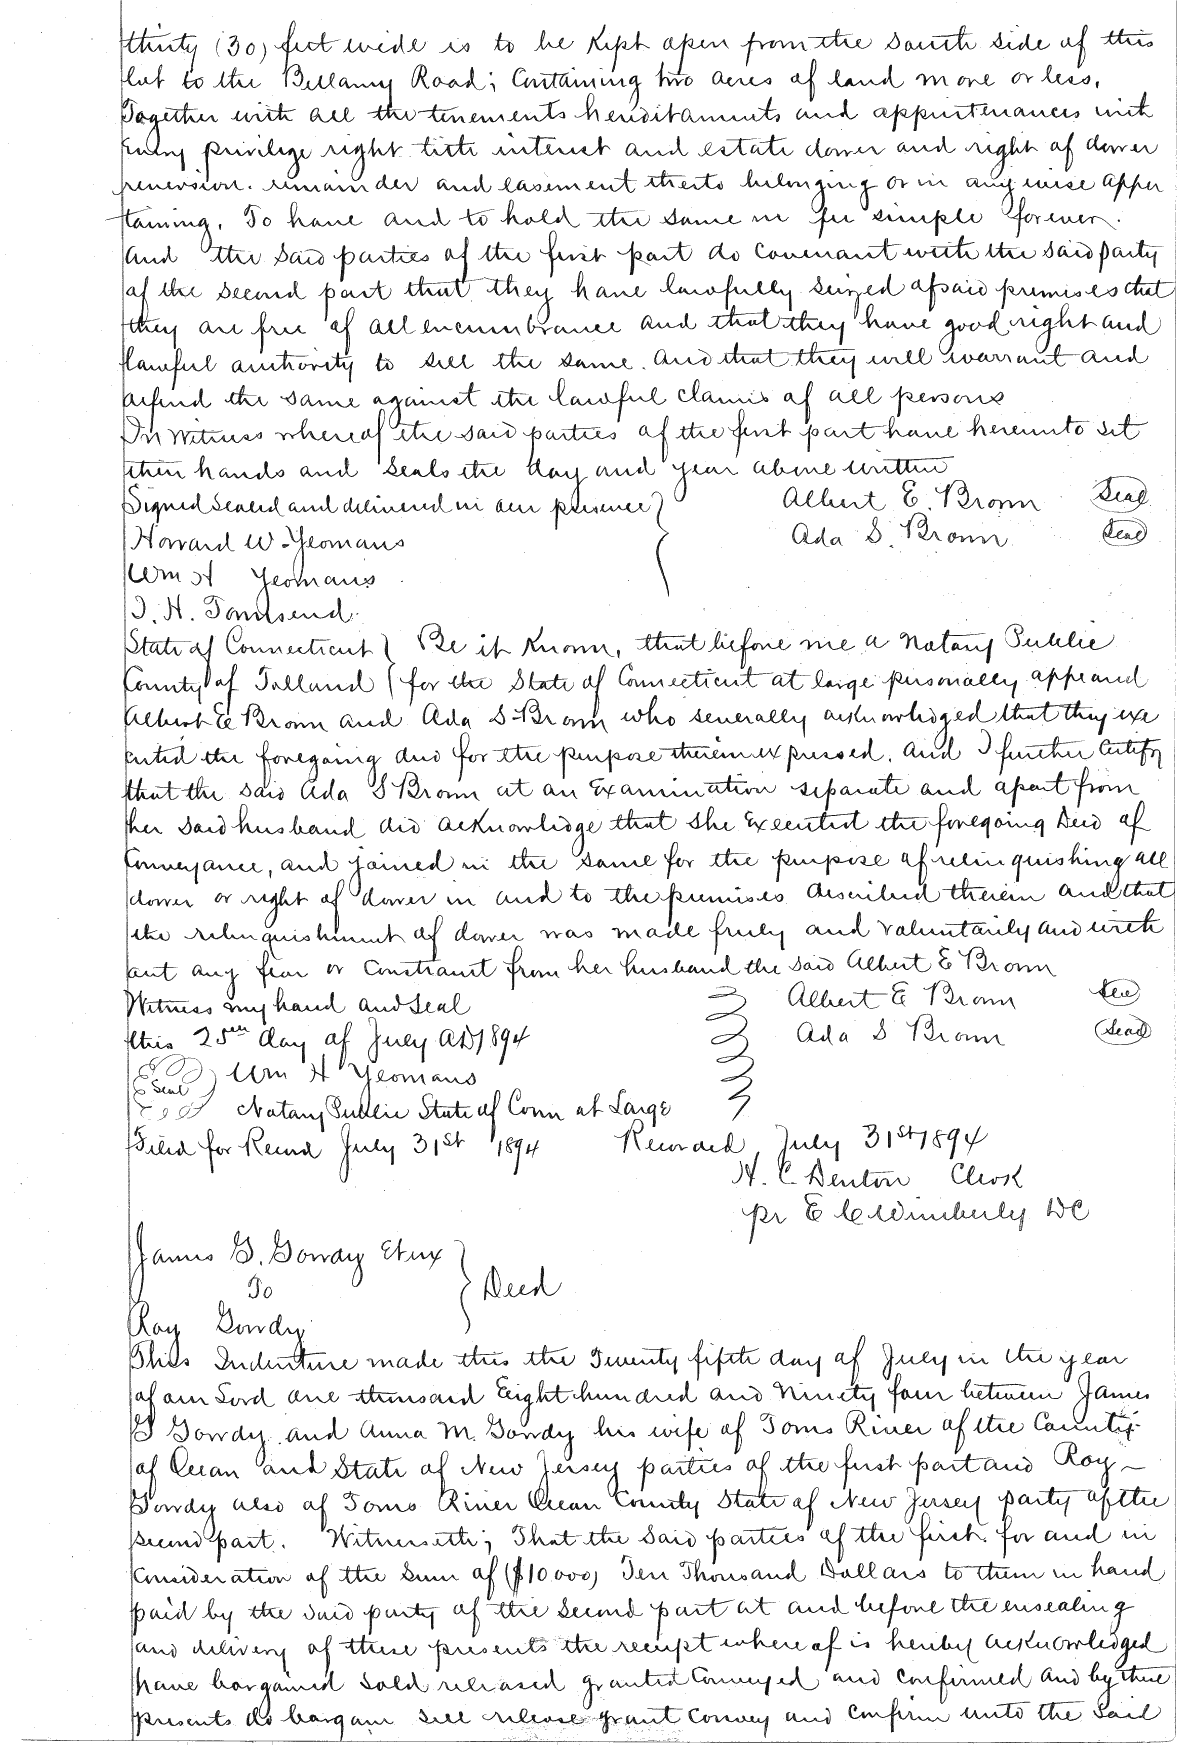 thirty (30) feet wide is to be kept open from the South side of this
lot to the Bellamy Road; Containing two acres of land more or less.
Together with all the tenements hereditaments and appurtenances with
every privilege right title interest and estate dower and right of dower
reversion. remainder and easement thereto belonging or in any wise apper
taining. To have and to hold the same in fee simple forever.
And the said parties of the first part do covenant with the said party
of the second part that they have lawfully seized of said premises that
they are free of all encumbrance and that they have good right and
lawful authority to sell the same. And that they will warrant and
defend the same against the lawful claims of all persons
In Witness whereof the said parties of the first part have hereunto set
their hands and seals the day and year above written
Signed Sealed and delivered in our presence } Albert E. Brown Seal
Howard W. Yeomans Ada S. Brown Seal
Wm H Yeomans
T. H. Townsend
State of Connecticut } Be it Known, that before me a Notary Public
County of Tolland } for the State of Connecticut at large personally appeared
Albert E Brown and Ada S Brown who severally acknowledged that they exe
cuted the foregoing deed for the purpose therein expressed. And I further Certify
that the said Ada S Brown at an Examination separate and apart from
her said husband did acknowledge that she Executed the foregoing Deed of
Conveyance, and joined in the same for the purpose of relinquishing all
dower or right of dower in and to the premises described therein and that
the relinquishment of dower was made freely and voluntarily and with
out any fear or constraint from her husband the said Albert E Brown
Witness my hand and Seal Albert E Brown Seal
this 25th day of July AD 1894 Ada S Brown Seal
Seal Wm H Yeomans
Notary Public State of Conn at Large
Filed for Record July 31st 1894 Recorded July 31st 1894
H. C Denton Clerk
pr E C Wimberly DC
James G. Gowdy Etux }
To } Deed
Roy Gowdy
This Indenture made this the Twenty fifth day of July in the year
of our Lord one thousand Eight hundred and Ninety four between James
G Gowdy and Anna M. Gowdy his wife of Toms River of the County
of Ocean and State of New Jersey parties of the first part and Roy
Gowdy also of Toms River Ocean County State of New Jersey party of the
second part. Witnesseth; That the said parties of the first. for and in
Consideration of the sum of ($10000) Ten Thousand Dollars to them in hand
paid by the said party of the second part at and before the ensealing
and delivery of these presents the receipt whereof is hereby acknowledged
have bargained sold released granted conveyed and confirmed and by these
presents do bargain sell release grant convey and confirm unto the said